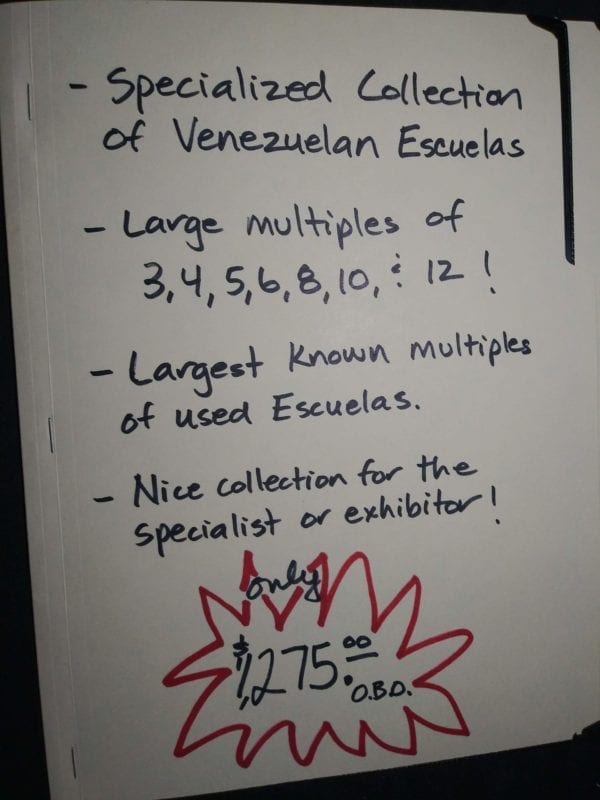 - Specialized Collection
of Venezuelan Escuelas
- Large multiples of
3, 4, 5, 6, 8, 10, & 12 !
- Largest Known multiples
of used Escuelas.
- Nice collection for the
specialist or exhibitor!
only
$1,275.00
O.B.O.